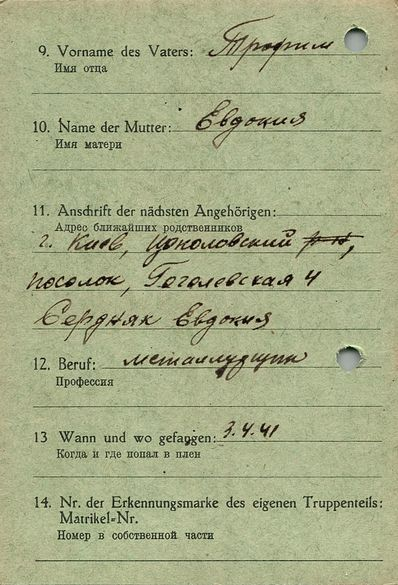 9. Vorname des Vaters: Трофим
Имя отца
10. Name der Mutter: Евдокия
Имя матери
11. Anschrift der nächsten Angehörigen:
Адрес ближайших родственников
г. Киев,
посолок, Гоголевская 4
Сердняк Евдокия
12. Beruf:
Профессия
13 Wann und wo gefangen: 3.4.41
Когда и где попал в плен
14. Nr. der Erkennungsmarke des eigenen Truppenteils:
Matrikel=Nr.
Номер в собственной части